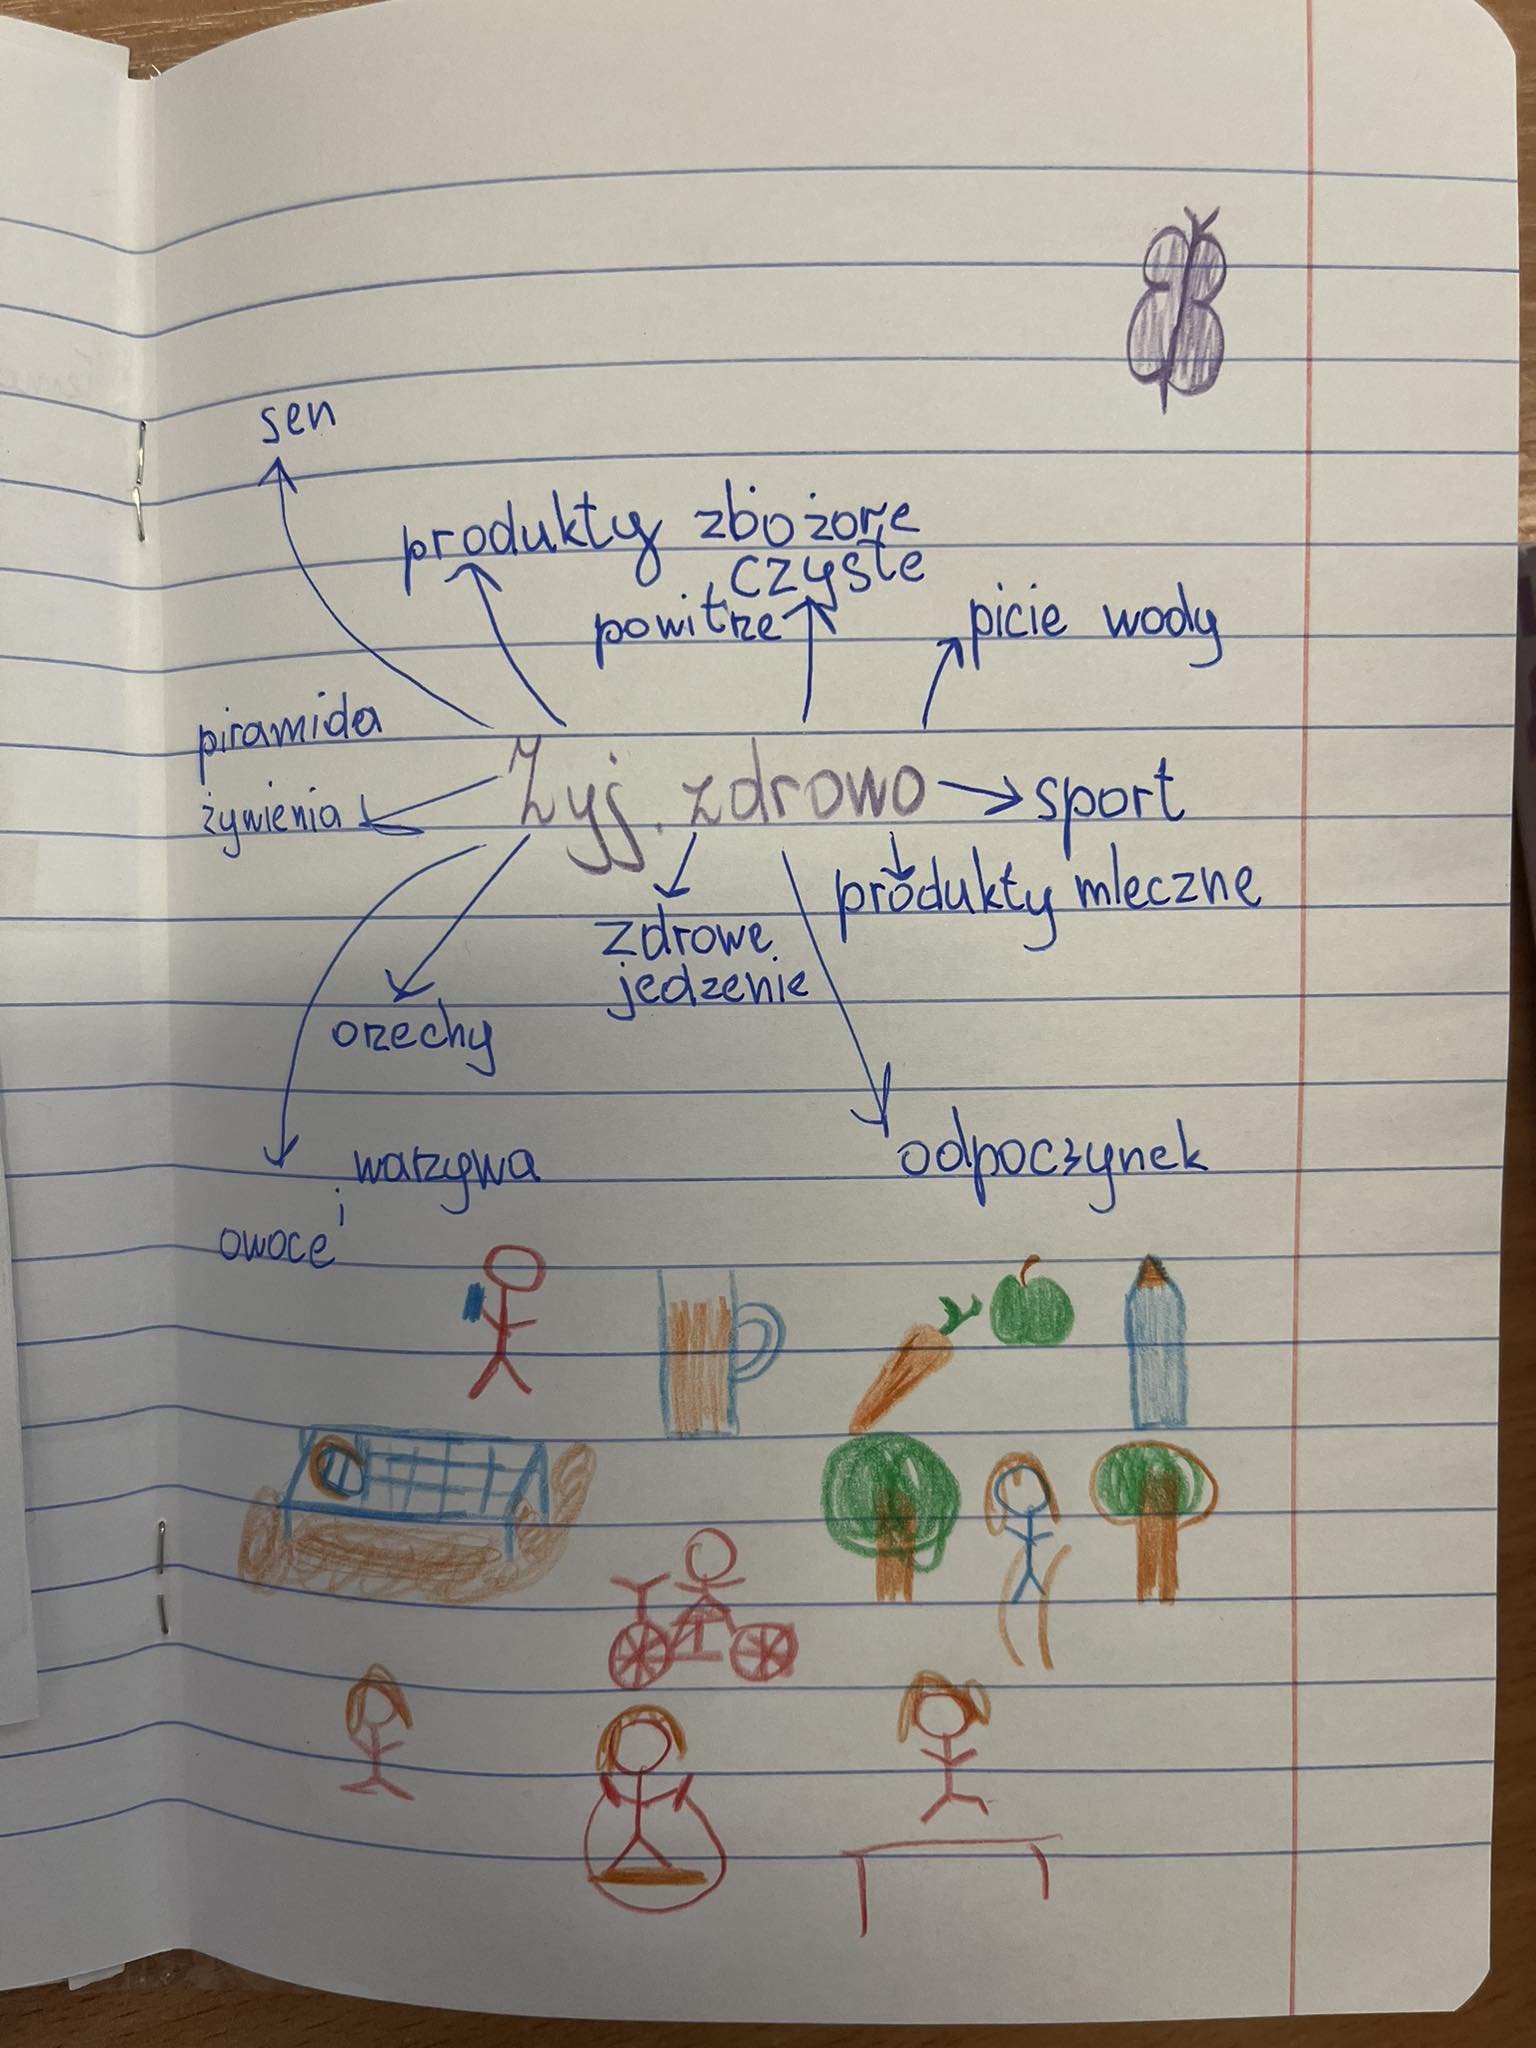 sen
produkty zbożowe
czyste
powitrze
picie wody
piramida
żywienia
Żyj zdrowo
sport
produkty mleczne
zdrowe
jedzenie
orzechy
warzywa
i
owoce
odpoczynek